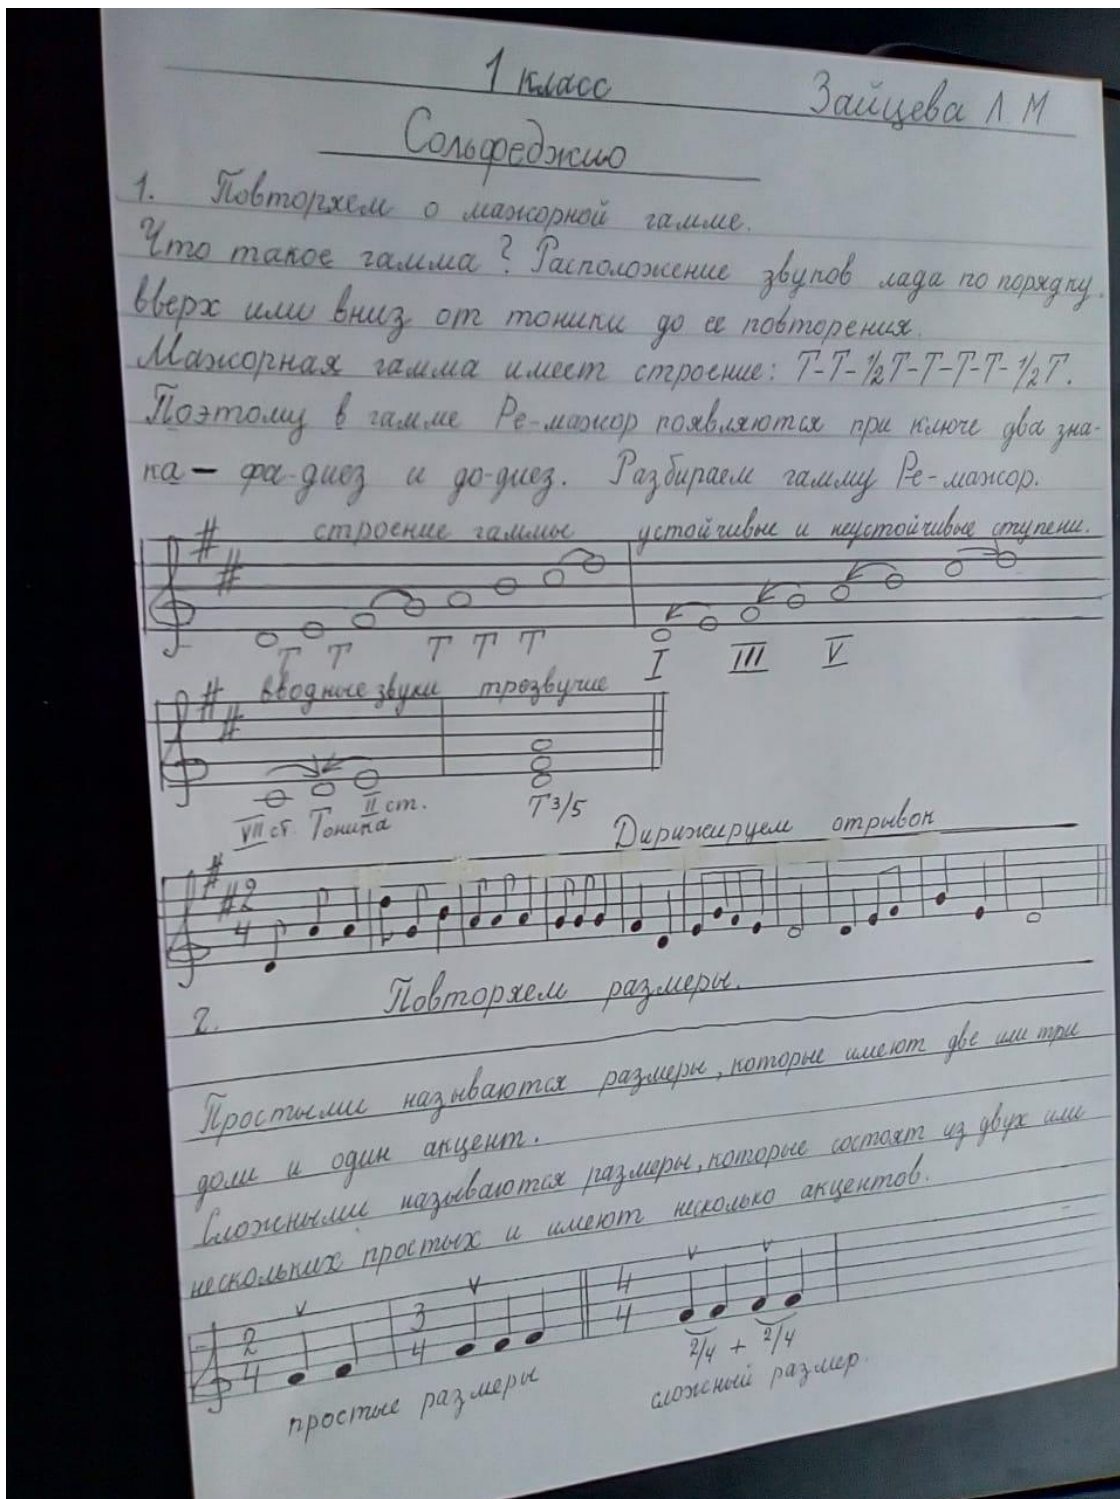 1 класс Зайцева Л. М
Сольфеджио
1. Повторяем о мажорной гамме.
Что такое гамма? Расположение звуков лада по порядку
вверх или вниз от тоники до ее повторения.
Мажорная гамма имеет строение: Т-Т-1/2Т-Т-Т-Т-1/2Т.
Поэтому в гамме Ре-мажор появляются при ключе два зна-
ка – фа-диез и до-диез. Разбираем гамму Ре-мажор.
строение гаммы устойчивые и неустойчивые ступени.
Т Т Т Т Т I III V
вводные звуки трезвучие
VII ст. Тоника II ст. Т3/5
Дирижируем отрывок
2
4
2. Повторяем размеры.
Простыми называются размеры, которые имеют две или три
доли и один акцент.
Сложными называются размеры, которые состоят из двух или
нескольких простых и имеют несколько акцентов.
2 3 4
4 4 4
2/4 + 2/4
простые размеры сложный размер.